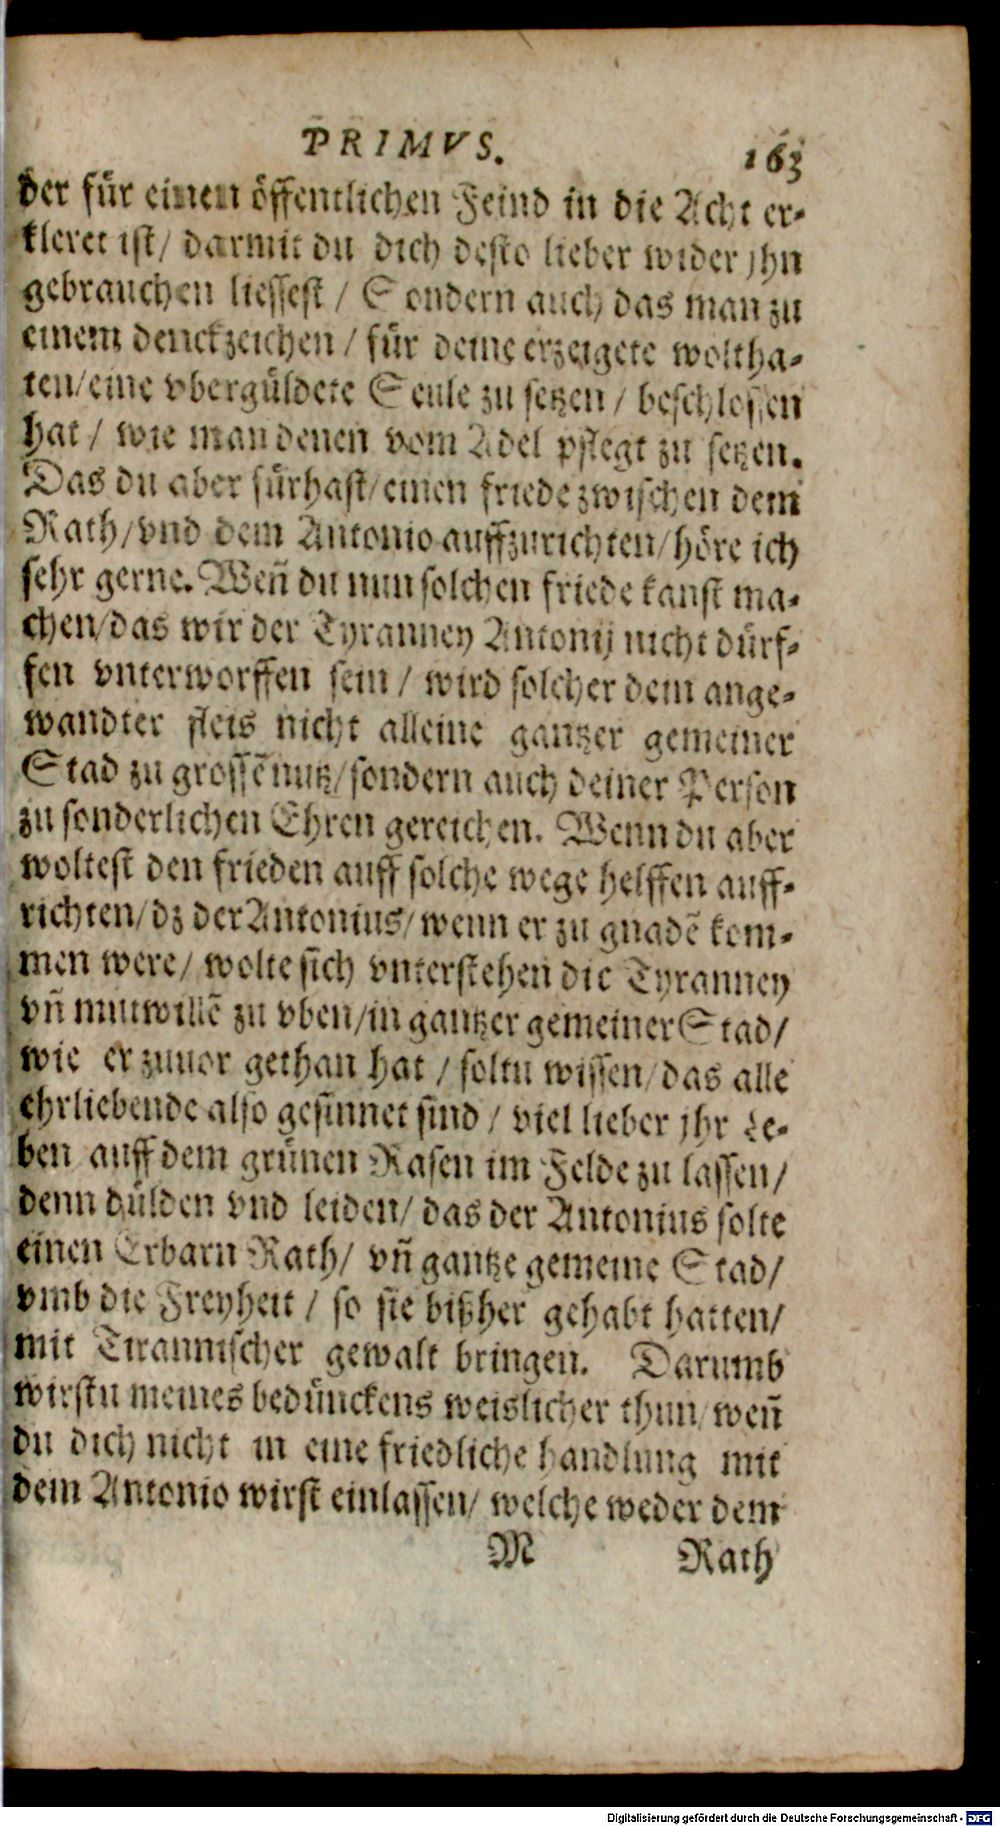 PRIMVS. 163
der für einen öffentlichen Feind in die Acht er-
kleret ist/ darmit du dich desto lieber wider jhn
gebrauchen liessest / Sondern auch das man zu
einem denckzeichen / für deine erzeigete woltha-
ten/eine vbergüldete Seule zu setzen / beschlossen
hat / wie man denen vom Adel pflegt zu setzen.
Das du aber fürhast/einen friede zwischen dem
Rath/vnd dem Antonio auffzurichten/höre ich
sehr gerne. Weñ du nun solchen friede kanst ma-
chen/das wir der Tyranney Antonij nicht dürf-
fen vnterworffen sein / wird solcher dein ange-
wandter fleis nicht alleine gantzer gemeiner
Stad zu grossẽ nutz/sondern auch deiner Person
zu sonderlichen Ehren gereichen. Wenn du aber
woltest den frieden auff solche wege helffen auff-
richten/dz der Antonius/wenn er zu gnadẽ kom-
men were/ wolte sich vnterstehen die Tyranney
vñ mutwillẽ zu vben/in gantzer gemeiner Stad/
wie er zuuor gethan hat / soltu wissen/das alle
ehrliebende also gesinnet sind / viel lieber jhr Le-
ben auff dem grünen Rasen im Felde zu lassen/
denn dülden vnd leiden/ das der Antonius solte
einen Erbarn Rath/ vñ gantze gemeine Stad/
vmb die Freyheit / so sie bißher gehabt hatten/
mit Tirannischer gewalt bringen. Darumb
wirstu meines bedünckens weislicher thun/weñ
du dich nicht in eine friedliche handlung mit
dem Antonio wirst einlassen/ welche weder dem
M Rath
Digitalisierung gefördert durch die Deutsche Forschungsgemeinschaft - DFG